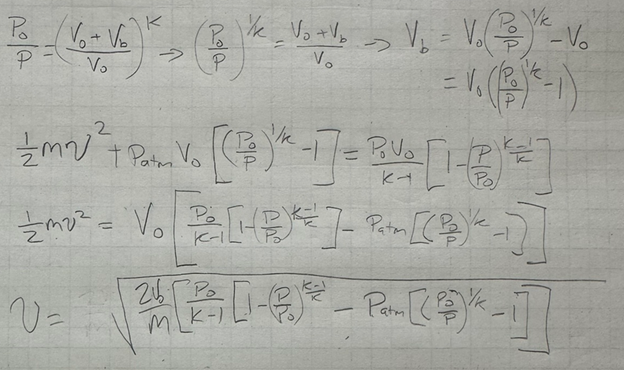 P₀/P = ((V₀ + V_b)/V₀)^K → (P₀/P)^(1/k) = (V₀ + V_b)/V₀ → V_b = V₀(P₀/P)^(1/k) - V₀
= V₀((P₀/P)^(1/k) - 1)
1/2 mv² + P_atm V₀ [(P₀/P)^(1/k) - 1] = P₀V₀/(K-1) [1 - (P/P₀)^((k-1)/k)]
1/2 mv² = V₀ [P₀/(K-1) [1 - (P/P₀)^((k-1)/k)] - P_atm [(P₀/P)^(1/k) - 1)]]
v = √(2V₀/m [P₀/(K-1) [1 - (P/P₀)^((k-1)/k) - P_atm [(P₀/P)^(1/k) - 1]])